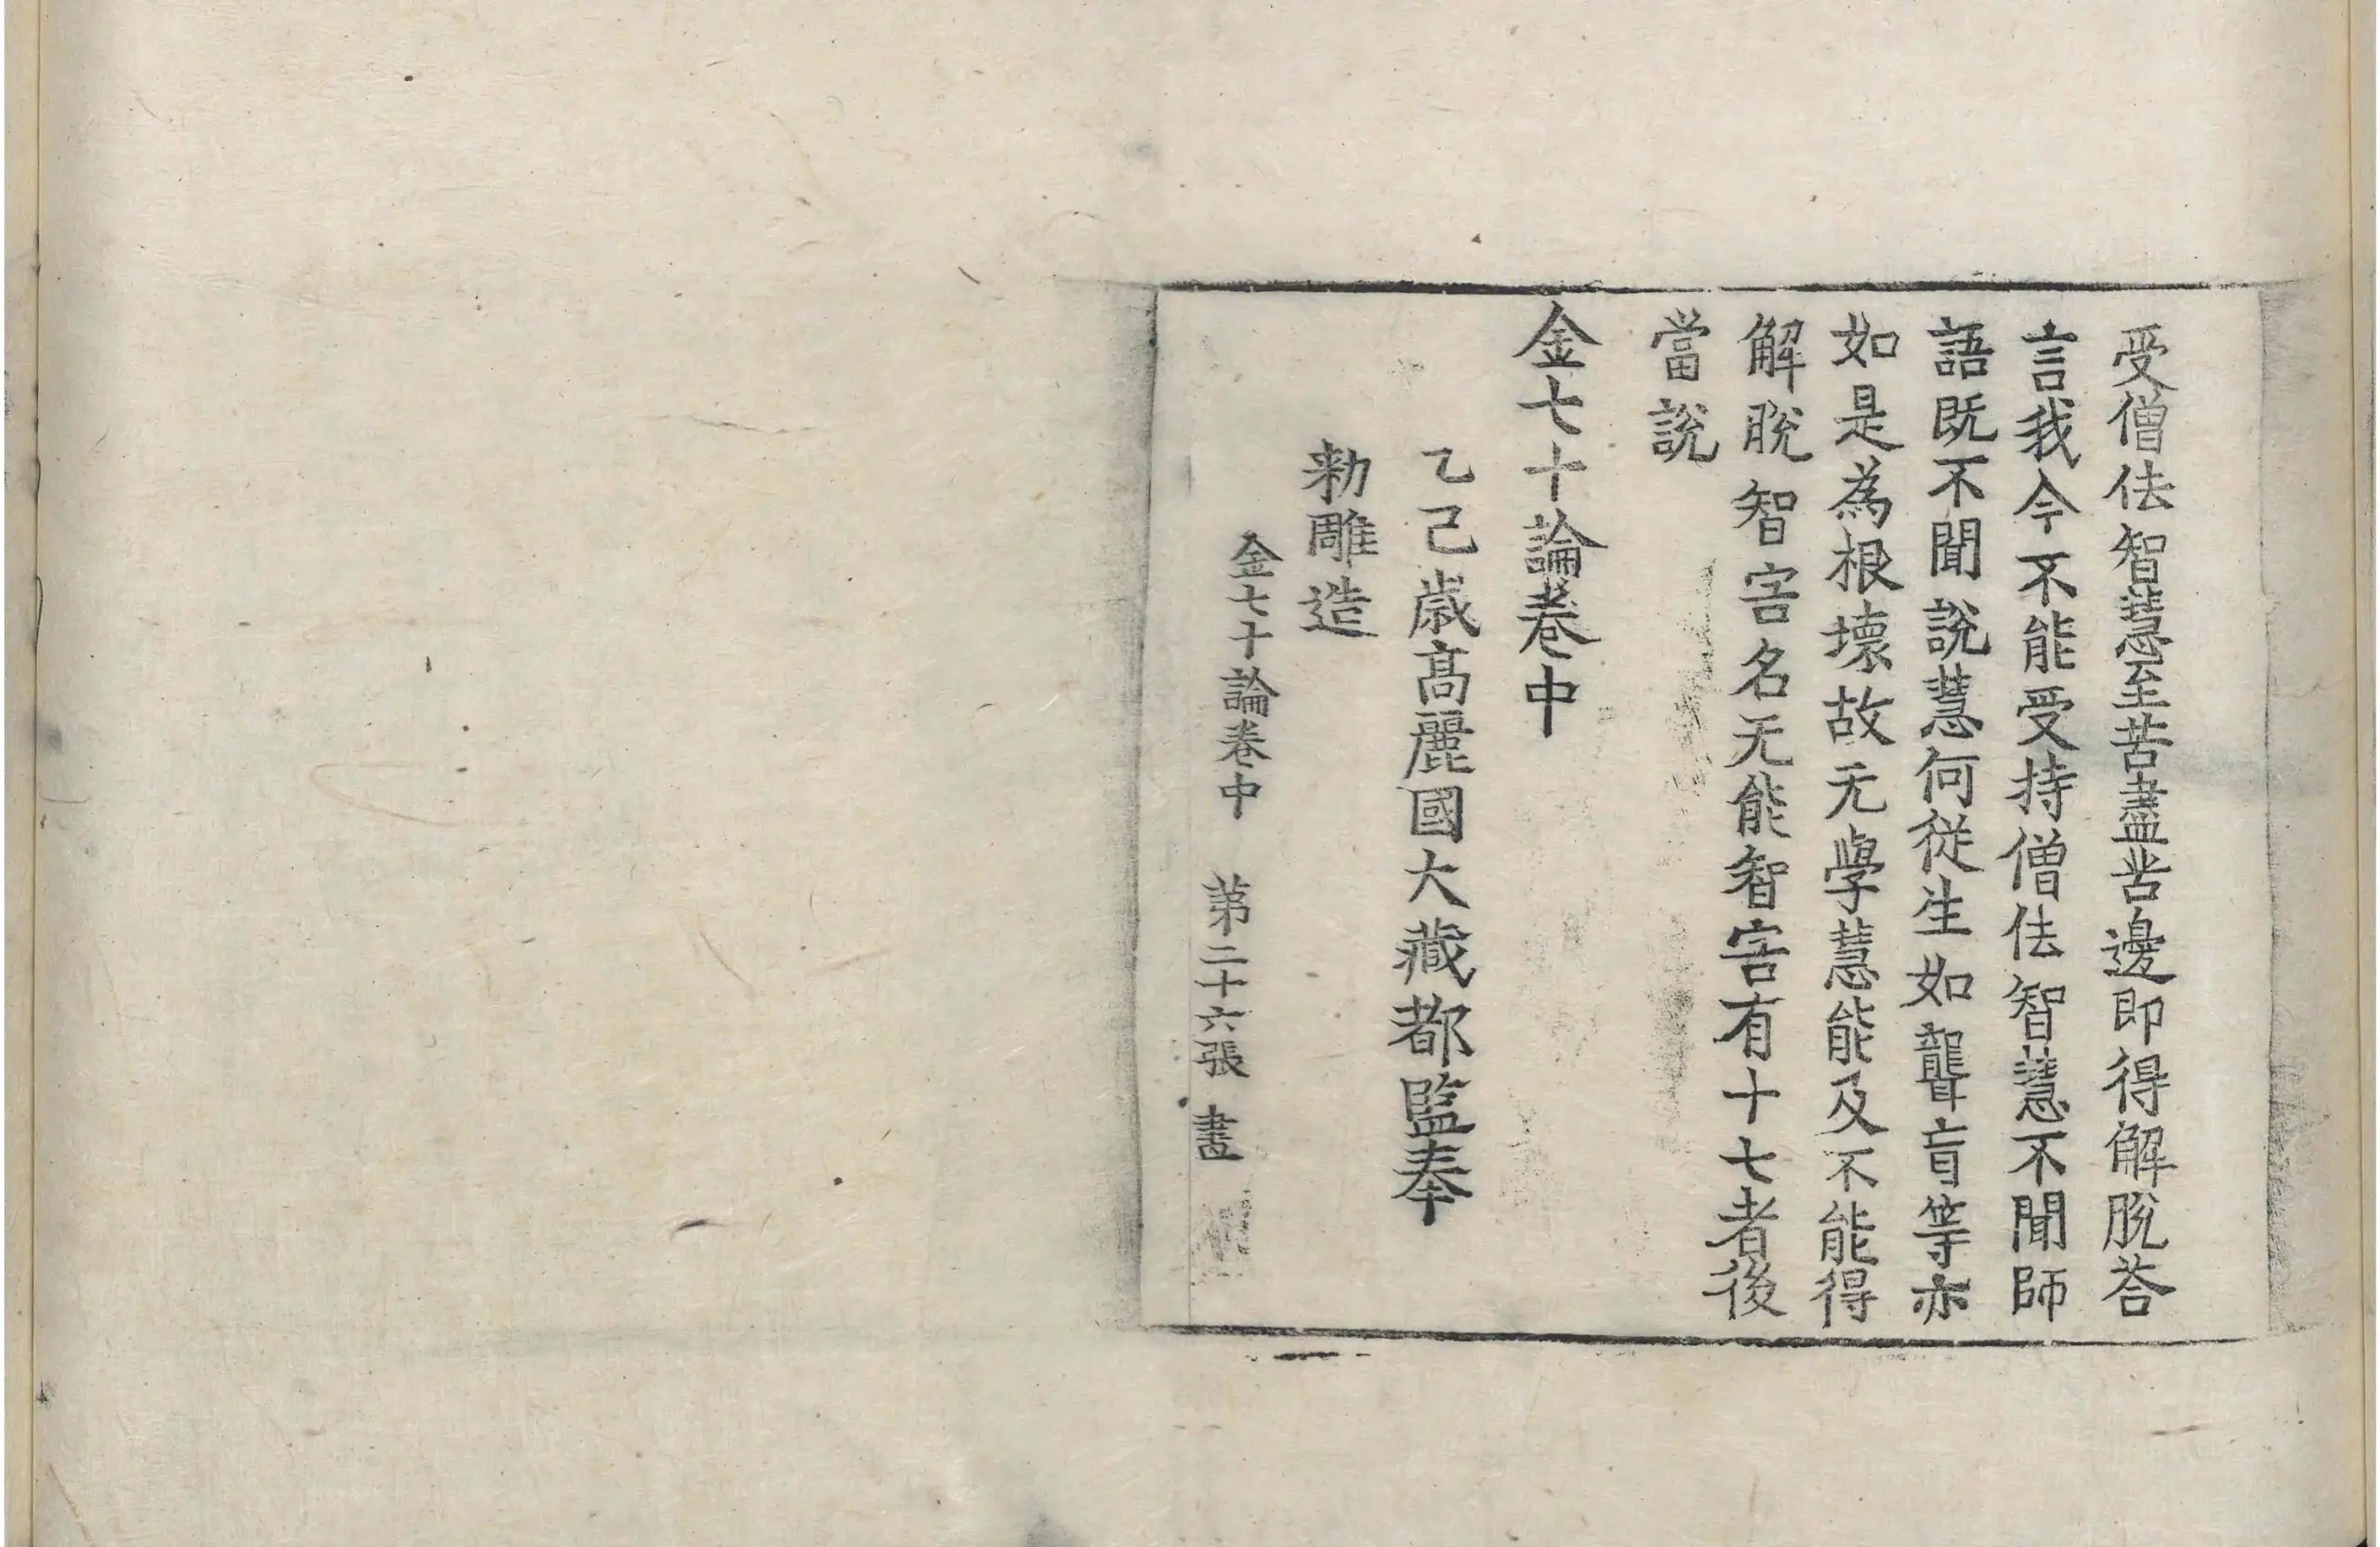 受僧佉智慧至苦盡苦邊即得解脫荅
言我今不能受持僧佉智慧不聞師
語既不聞說慧何從生如聾盲等亦
如是為根壞故无學慧能及不能得
解脫智害名无能智害有十七者後
當說
金七十論卷中
乙巳歲高麗國大藏都監奉
勑雕造
金七十論卷中 第二十六張 畫